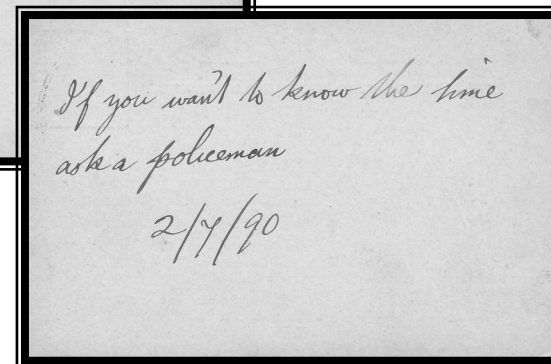 If you want to know the time
ask a policeman
2/7/90